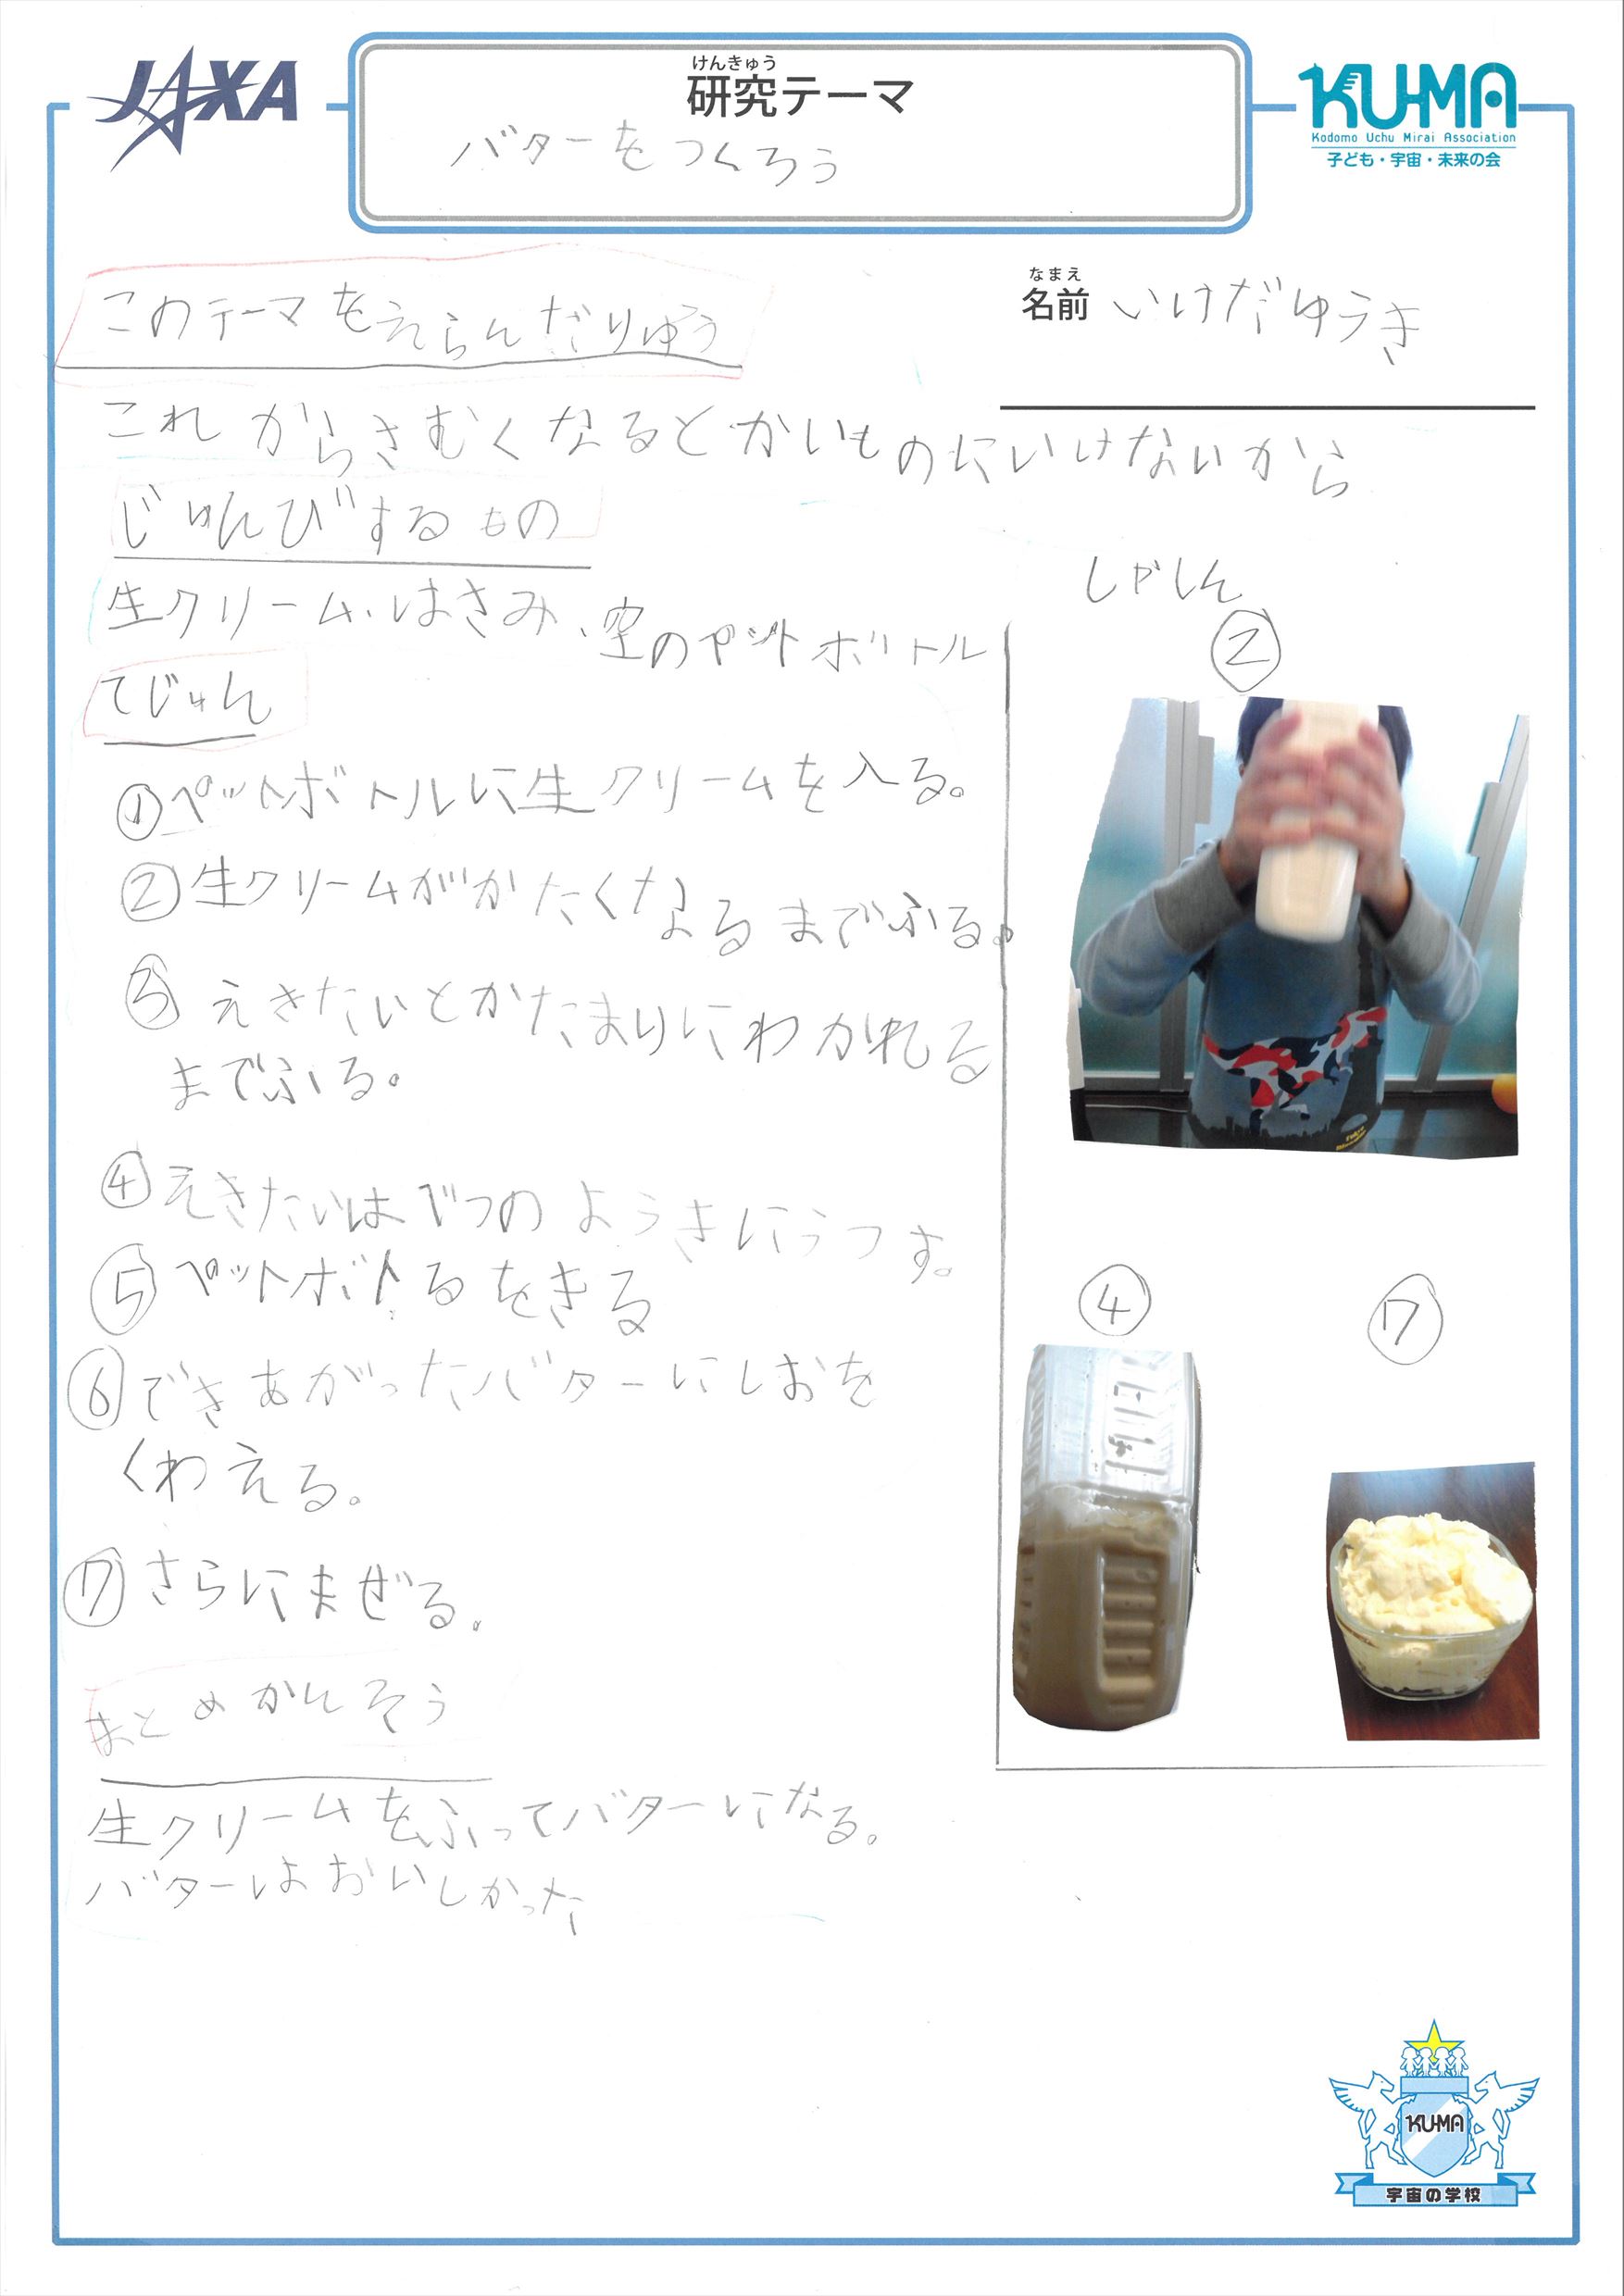 JAXA
けんきゅう
研究テーマ
バターをつくろう
KU-MA
Kodomo Uchu Mirai Association
子ども・宇宙・未来の会
なまえ
名前 いけだゆうき
このテーマをえらんだりゆう
これからさむくなるとかいものにいけないから
じゅんびするもの
生クリーム、はさみ、空のペットボトル
てじゅん
①ペットボトルに生クリームを入る。
②生クリームがかたくなるまでふる。
③えきたいとかたまりにわかれる
までふる。
④えきたいはべつのようきにうつす。
⑤ペットボトるをきる
⑥できあがったバターにしおを
くわえる。
⑦さらにまぜる。
まとめかんそう
生クリームをふってバターになる。
バターはおいしかった
しゃしん
②
④
⑦
KU-MA
宇宙の学校